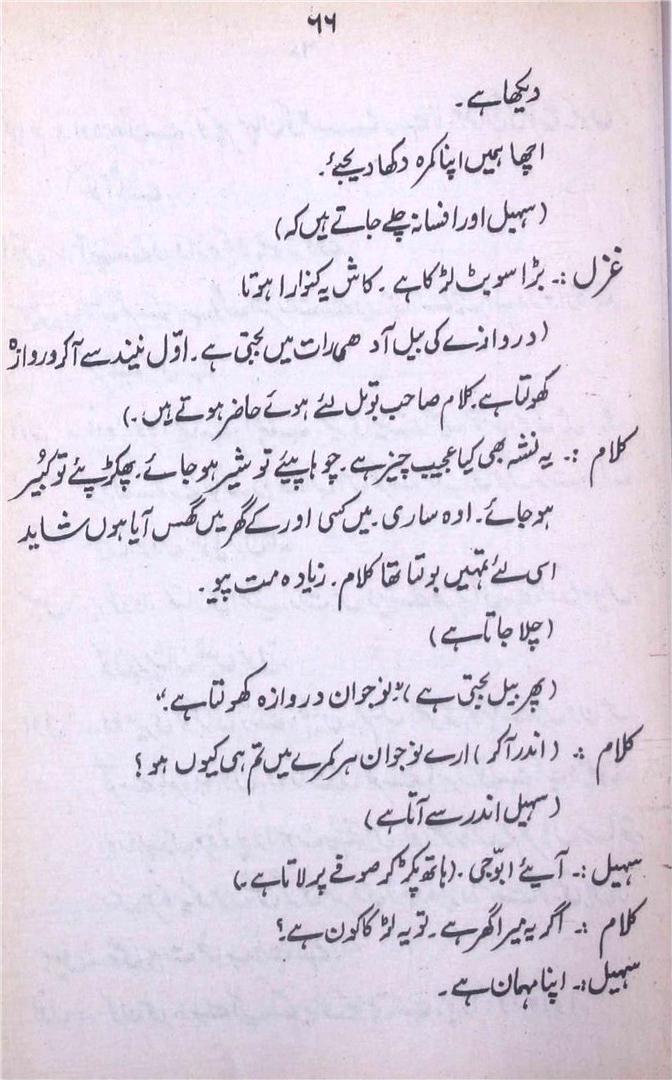 ۶۶
دیکھا ہے۔
اچھا ہمیں اپنا کمرہ دکھا دیجئے۔
(سہیل اور افسانہ چلے جاتے ہیں کہ)
غزل :۔ بڑا سویٹ لڑکا ہے۔ کاش یہ کنوارا ہوتا
(دروازے کی بیل آدھی رات میں بجتی ہے۔ اوّل نیند سے آکر دروازہ
کھولتا ہے۔ کلام صاحب بوتل لئے ہوئے حاضر ہوتے ہیں۔)
کلام :۔ یہ نشہ بھی کیا عجیب چیز ہے۔ چوہا پیئے تو شیر ہو جائے۔ پھکڑ پئے تو کبیر
ہو جائے۔ اوہ ساری۔ میں کسی اور کے گھر میں گھس آیا ہوں شاید
اسی لئے تمہیں بولتا تھا کلام۔ زیادہ مت پیو۔
(چلا جاتا ہے)
(پھر بیل بجتی ہے)" نوجوان دروازہ کھولتا ہے۔"
کلام :۔ (اندر آکر) ارے نوجوان ہر کمرے میں تم ہی کیوں ہو؟
(سہیل اندر سے آتا ہے)
سہیل :۔ آیئے ابوّ جی۔ (ہاتھ پکڑ کر صوفے پر لاتا ہے۔)
کلام :۔ اگر یہ میرا گھر ہے۔ تو یہ لڑکا کون ہے؟
سہیل :۔ اپنا مہمان ہے۔